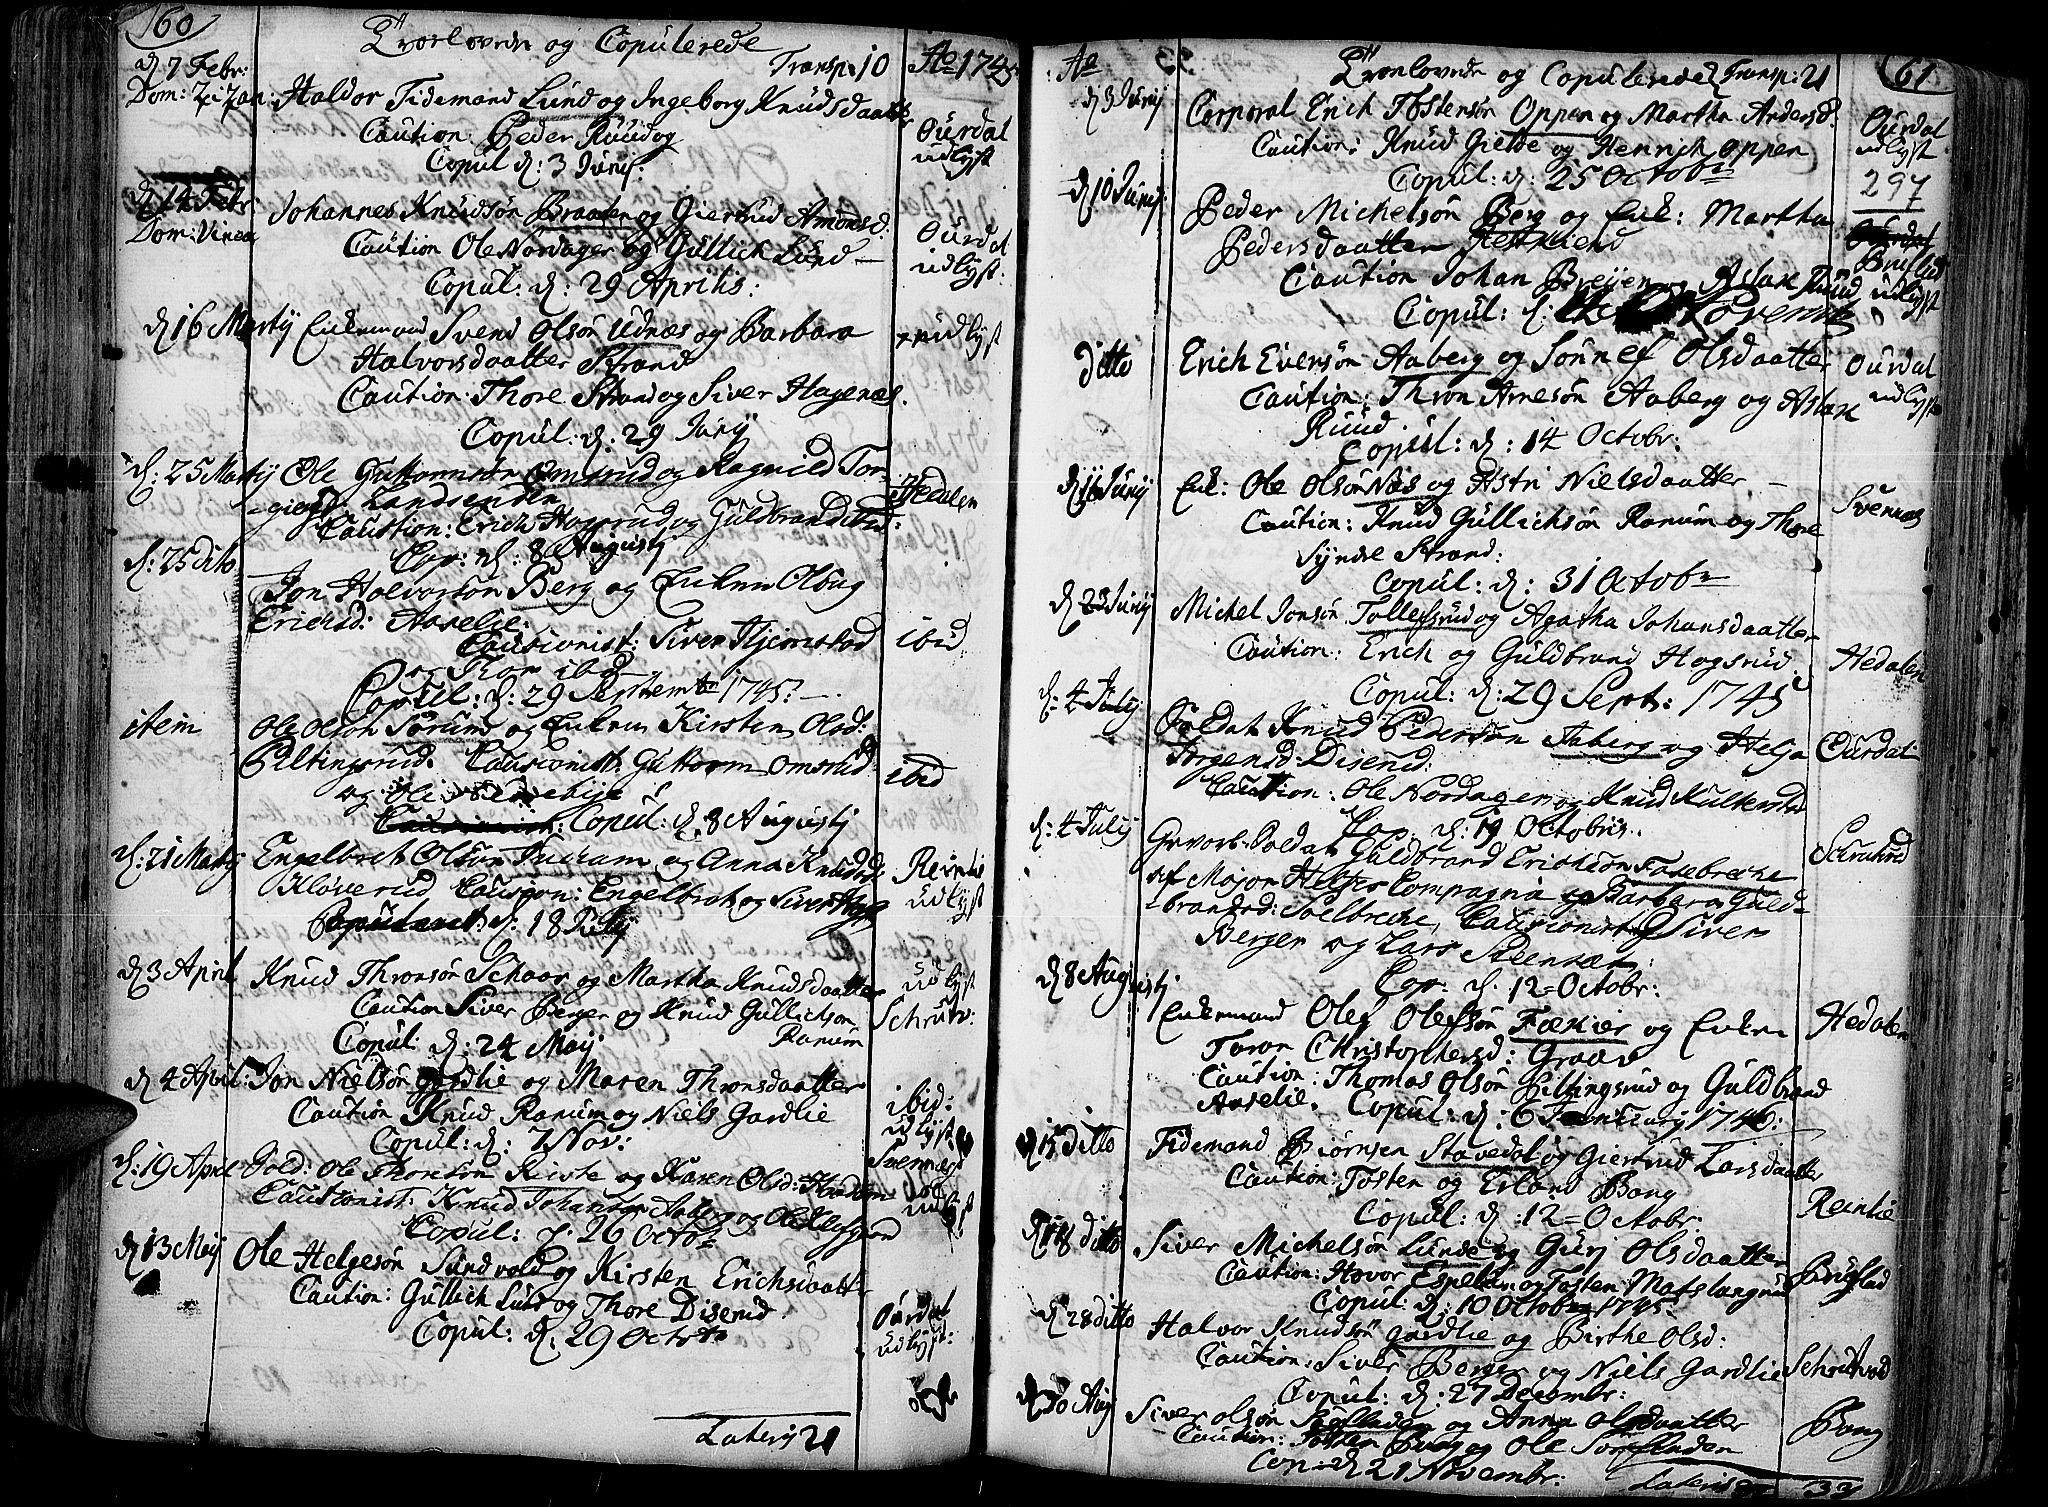 160
Trorlovede og Copulerede
Transp: 10 Ao 1745
d 7 Febr:
Dom: Haldor Tidemand Lund og Ingeborg Knudsdaatter
Caution: Peder Ruud og
Copul d: 3 Junij.
Ourdal
udlyst
d 14 Febr
Dom: Johannes Knudsøn Braaten og Giertrud Amonsd.
Caution Ole Nordager og Gullich Lund
Copul: d: 29 Aprilis:
Ourdal
udlyst.
d 16 Martij Enkemand Svend Olsøn Udnæs og Barbara
Halvorsdaatter Strand
udlyst
Caution: Thore Strand og Siver Hagenæs.
Copul: d: 29 Junij
d: 25 Martij Ole Guttormsøn Omsrud og Ragnild Tor-
-giersd Landsenden
Hedalen
Caution: Erich Hogsrud og Guldbrand ibid:
Cop: d: 8 Augusti
d: 25 dito
Jon Halvorsøn Berg og Enken Olbug
Erichsd: Aaselie:
Cautionist: Siver Hjemstad
og Thor ibd
ibid
Copul: d: 29 Septembr 1745.
item Ole Olsøn Sørum og Enken Kirsten Olsd:
Piltingsrud. Cautionist: Guttorm Omsrud
ibid
Copul: d. 8 Augustj
d: 21 Martij Engelbret Olsøn og Anna Knudsd
Kløverud Caution: Engelbret og Siver
Reinlie
udlyst
d: 18 Julij
d 3 April Knud Thronsøn Schaar og Martha Knudsdaatter
Caution Siver Berger og Knud Gullichsøn
Ranum
udlyst
Schrutv:
Copul: d: 24 Maij
d 4 April: Jon Nielsøn Gardlie og Maren Thronsdaatter
Caution Knud Ranum og Niels Gardlie
Copul: d: 7 Nov:
ibid:
udlyst
d: 19 April Sold: Ole Thoresøn Riste og Karen Olsd:
Cautionist: Knud Johansøn Aaberg og Ole
Copul: d. 26 Octobr
Svennæs
udlyst
d 13 Maij Ole Helgesøn Sundvold og Kirsten Erichsdaatter
Caution: Gullich Lund og Thore Disenud.
Copul: d. 29 Octobr
Ourdal
udlyst:
Lateris 21
161
Ao
Trorlovede og Copulerede Transp: 21
d 3 Junij Corporal Erich Tostensøn Oppen og Martha Andersd.
Caution: Knud Gielde og Henrich Oppen
Copul: d: 25 Octobr
Ourdal
udlyst
297
d 10 Junij Peder Michelsøn Berg og Enk: Martha
Pedersdaatter
Caution Johan Breijen og Aslak Ruud
Copul: d: Novembr
Bruflat
udlyst
ditto Erich Eversøn Aaberg og Sønnef Olsdaatter
Caution: Thron Arnesøn Aaberg og Aslak
Ruud.
Copul: d: 14 Octobr:
Ourdal
udlyst
d 16 Junij Enk: Ole Olsøn Næs og Astri Nielsdaatter
Caution: Knud Gullichsøn Ranum og Thore
Syndre Strand:
Copul: d: 31 Octobr
Svennæs
d 23 Junij Michel Jonsøn Tollefsrud og Agatha Johansdaatter
Caution: Erich og Guldbrand Hogsrud.
Copul: d: 29 Sept: 1745
Hedalen
d: 4 Julij Soldat Knud Pedersøn Aaberg og Helja
Jørgensd: Disenud:
Caution: Ole Nordager og Knud
Cop: d: 19 Octobris.
Ourdal
d: 4 Julij Gevorb. Soldat Guldbrand Erichsøn Fasebrecke
af Major Compagnie og Barbara Guld-
-brandsd: Soelbrecke, Cautionist: Siver
Berger og Lars
Cop: d. 12 Octobr:
Schrutvod
d 8 Augusti
Enkemand Olef Olefsøn og Enken
Toron Christophersd: Graav
Caution: Thomas Olsøn Piltingsrud og Guldbrand
Aaselie. Copul: d: 6 Januarij 1746:
Hedalen
d 15 ditto Tidemand Biørnsøn Stavedal og Giertrud Larsdaatter
Caution: Tosten og Erland Bang
Copul: d: 12 Octobr.
Reinlie
d 18 ditto Siver Michelsøn Lunde og Guri Olsdaatter
Caution: Hovor Espelien og Tosten
Copul: d: 10 Octobr 1745.
Bruflad
d 28 ditto Halvor Knudsøn Gardlie og Birthe Olsd:
Caution: Siver Berger og Niels Gardlie
Copul: d: 27 Decembr:
Schrutvod
d 30 Aug Siver Olsøn og Anna Olsdaatter
Caution: Tosten Bang og Ole
Cop: d 21 Novembr:
Bang
Lateris 33